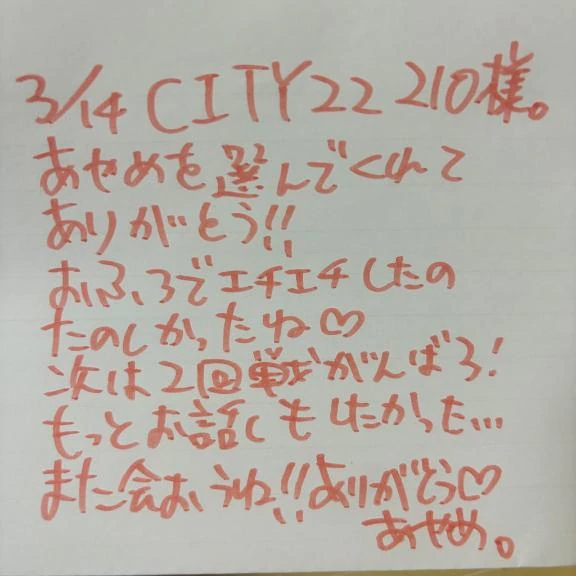 3/14 CITY22 210様。
あやめを選んでくれて
ありがとう!!
おふろでエチエチしたの
たのしかったね♡
次は2回戦がんばろ!
もっとお話しもしたかった...
また会おうね!!ありがとう♡
あやめ。